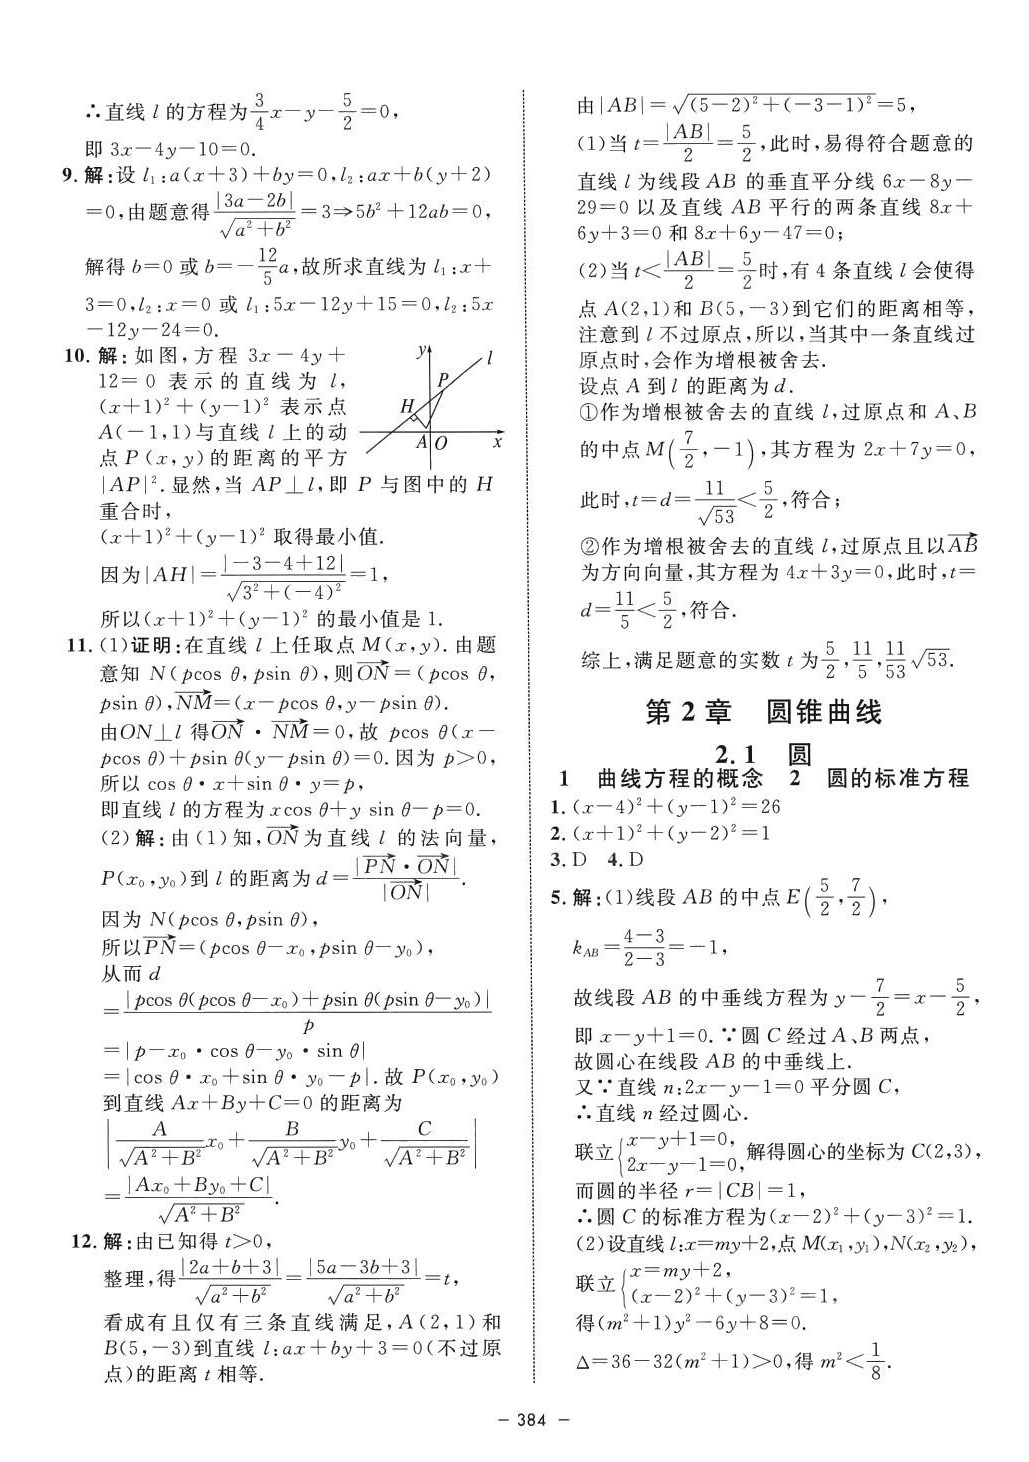 ∴直线 l 的方程为3/4x－y－5/2＝0，
即 3x－4y－10＝0.
9. 解:设 l₁:a(x＋3)＋by＝0,l₂:ax＋b(y＋2)
＝0,由题意得|3a－2b|/√(a²＋b²)＝3⇒5b²＋12ab＝0,
解得 b＝0 或 b＝－12/5a,故所求直线为 l₁:x＋
3＝0,l₂:x＝0 或 l₁:5x－12y＋15＝0,l₂:5x
－12y－24＝0.
10. 解:如图,方程 3x－4y＋
12＝0 表示的直线为 l,
(x＋1)²＋(y－1)² 表示点
A(－1,1)与直线 l 上的动
点 P(x,y)的距离的平方
|AP|².显然,当 AP⊥l,即 P 与图中的 H
重合时,
(x＋1)²＋(y－1)² 取得最小值.
因为|AH|＝|－3－4＋12|/√(3²＋(－4)²)＝1,
所以(x＋1)²＋(y－1)² 的最小值是 1.
y
l
P
H
A
O
x
11. (1)证明:在直线 l 上任取点 M(x,y).由题
意知 N(pcos θ,psin θ),则ON→＝(pcos θ,
psin θ),NM→＝(x－pcos θ,y－psin θ).
由ON⊥l 得ON→·NM→＝0,故 pcos θ(x－
pcos θ)＋psin θ(y－psin θ)＝0.因为 p＞0,
所以 cos θ·x＋sin θ·y＝p,
即直线 l 的方程为xcos θ＋y sin θ－p＝0.
(2)解:由(1)知,ON→为直线 l 的法向量,
P(x₀,y₀)到 l 的距离为 d＝|PN→·ON→|/|ON→|.
因为 N(pcos θ,psin θ),
所以PN→＝(pcos θ－x₀,psin θ－y₀),
从而 d
＝|pcos θ(pcos θ－x₀)＋psin θ(psin θ－y₀)|/p
＝|p－x₀·cos θ－y₀·sin θ|
＝|cos θ·x₀＋sin θ·y₀－p|.故 P(x₀,y₀)
到直线 Ax＋By＋C＝0 的距离为
|A/√(A²＋B²)x₀＋B/√(A²＋B²)y₀＋C/√(A²＋B²)|
＝|Ax₀＋By₀＋C|/√(A²＋B²).
12. 解:由已知得 t＞0,
整理,得|2a＋b＋3|/√(a²＋b²)＝|5a－3b＋3|/√(a²＋b²)＝t,
看成有且仅有三条直线满足,A(2,1)和
B(5,－3)到直线 l:ax＋by＋3＝0(不过原
点)的距离 t 相等.
由|AB|＝√((5－2)²＋(－3－1)²)＝5,
(1)当 t＝|AB|/2＝5/2,此时,易得符合题意的
直线 l 为线段 AB 的垂直平分线 6x－8y－
29＝0 以及直线 AB 平行的两条直线 8x＋
6y＋3＝0 和 8x＋6y－47＝0;
(2)当 t＜|AB|/2＝5/2时,有 4 条直线 l 会使得
点 A(2,1)和 B(5,－3)到它们的距离相等,
注意到 l 不过原点,所以,当其中一条直线过
原点时,会作为增根被舍去.
设点 A 到 l 的距离为 d.
①作为增根被舍去的直线 l,过原点和 A、B
的中点 M(7/2,－1),其方程为 2x＋7y＝0,
此时,t＝d＝11/√53＜5/2,符合;
②作为增根被舍去的直线 l,过原点且以AB→
为方向向量,其方程为 4x＋3y＝0,此时,t＝
d＝11/5＜5/2,符合.
综上,满足题意的实数 t 为5/2,11/5,11/53√53.
第 2 章 圆锥曲线
2.1 圆
1 曲线方程的概念 2 圆的标准方程
1. (x－4)²＋(y－1)²＝26
2. (x＋1)²＋(y－2)²＝1
3. D 4. D
5. 解:(1)线段 AB 的中点 E(5/2,7/2),
k_AB＝(4－3)/(2－3)＝－1,
故线段 AB 的中垂线方程为 y－7/2＝x－5/2,
即 x－y＋1＝0.∵圆 C 经过 A、B 两点,
故圆心在线段 AB 的中垂线上.
又∵直线 n:2x－y－1＝0 平分圆 C,
∴直线 n 经过圆心.
联立{x－y＋1＝0, 2x－y－1＝0,解得圆心的坐标为 C(2,3),
而圆的半径 r＝|CB|＝1,
∴圆 C 的标准方程为(x－2)²＋(y－3)²＝1.
(2)设直线 l:x＝my＋2,点 M(x₁,y₁),N(x₂,y₂),
联立{x＝my＋2, (x－2)²＋(y－3)²＝1,
得(m²＋1)y²－6y＋8＝0.
Δ＝36－32(m²＋1)＞0,得 m²＜1/8.
－ 384 －